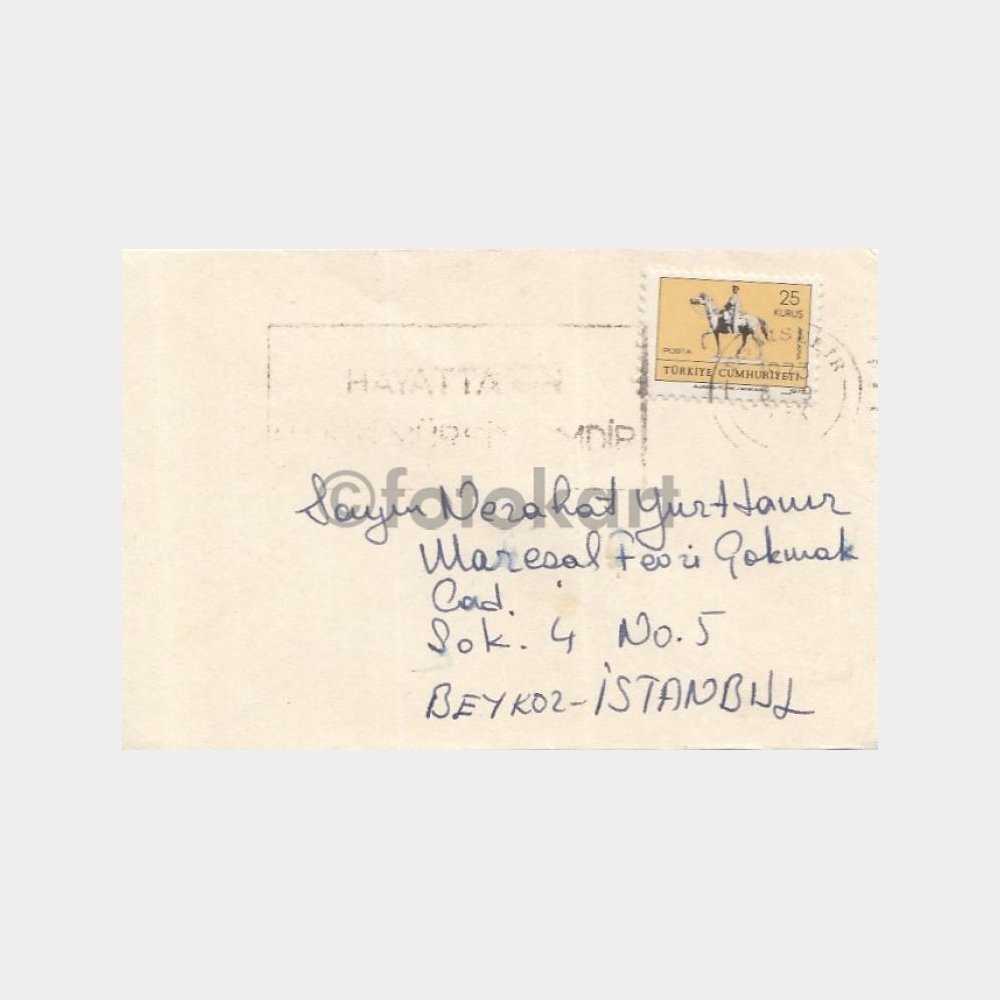 25
KURUŞ
POSTA
ANKARA
TÜRKİYE CUMHURİYETİ
HAYATTA
MDİR
©fotokart
Sayın Nezahat Yurttanır
Mareşal Fevzi Çakmak
Cad.
Sok. 4 No. 5
BEYKOZ-İSTANBUL